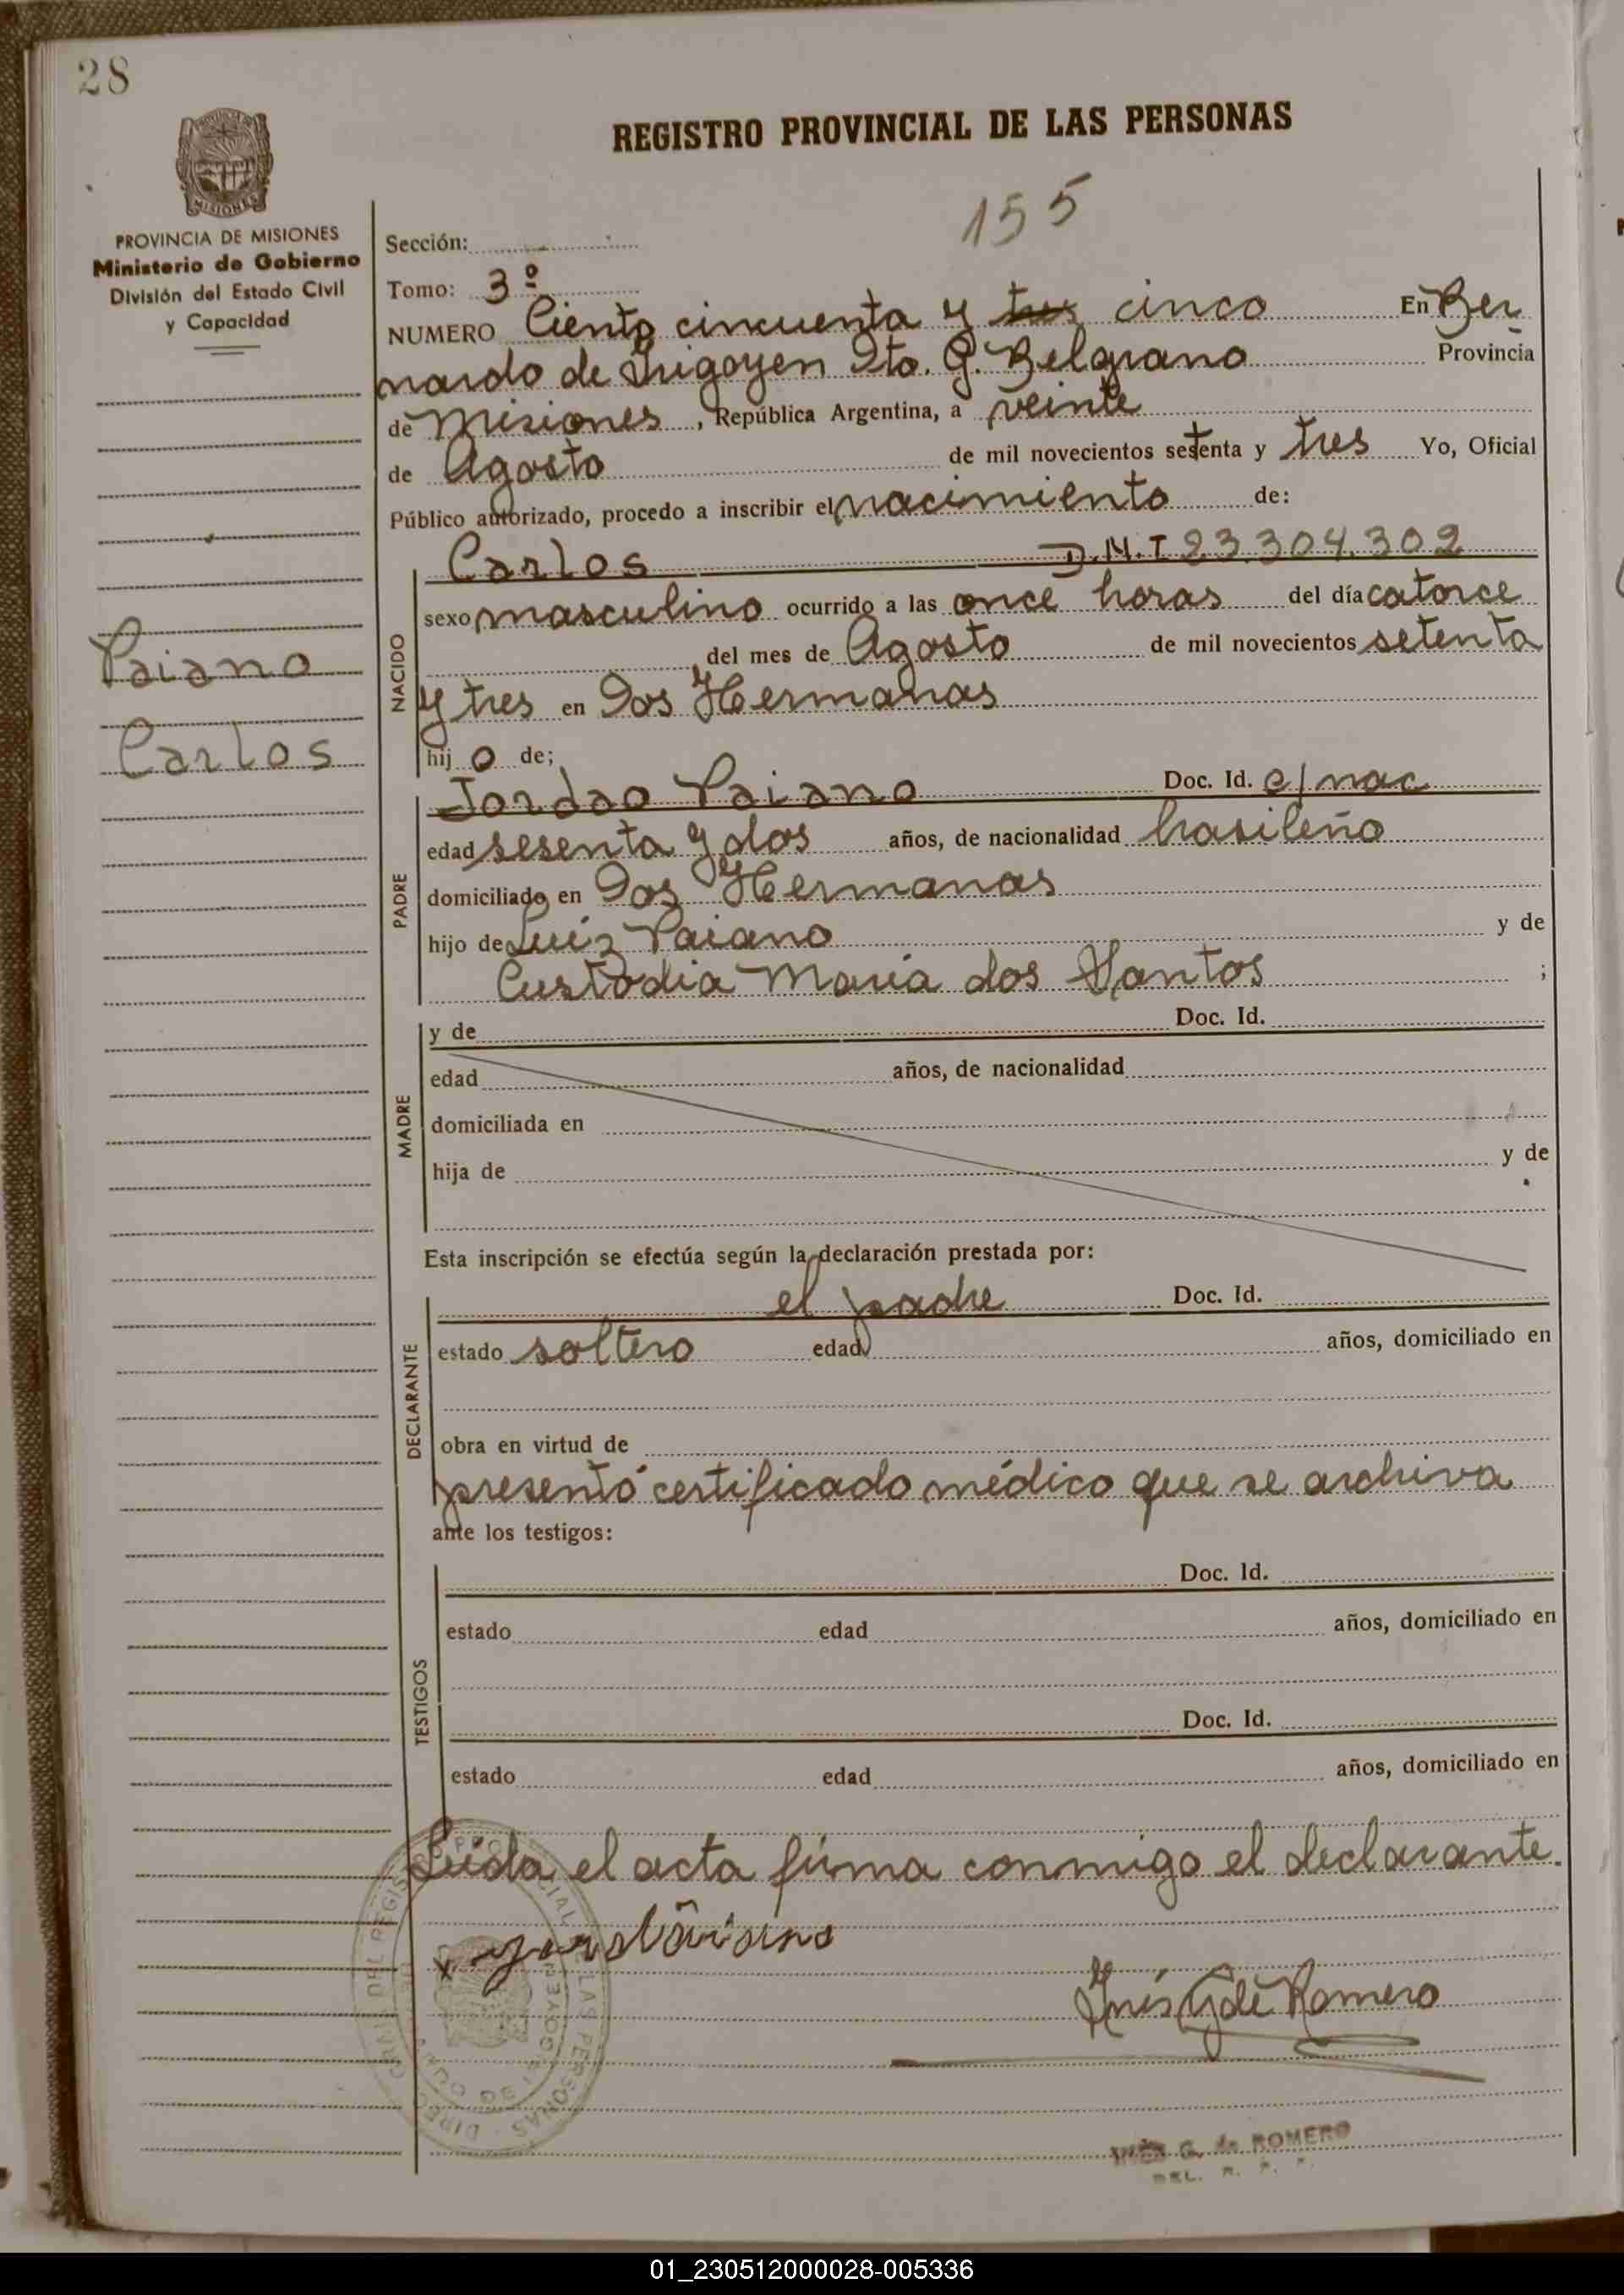 28
REGISTRO PROVINCIAL DE LAS PERSONAS
MISIONES
PROVINCIA DE MISIONES
Ministerio de Gobierno
División del Estado Civil
y Capacidad
155
Sección:
Tomo: 3º
NUMERO Ciento cincuenta y tres cinco En Ber
nardo de Irigoyen Dto. G. Belgrano Provincia
de Misiones, República Argentina, a veinte
de Agosto de mil novecientos setenta y tres Yo, Oficial
Público autorizado, procedo a inscribir el nacimiento de:
Carlos D.N.I 23.304.302
sexo masculino ocurrido a las once horas del día catorce
del mes de Agosto de mil novecientos setenta
y tres en Dos Hermanas
hijo de;
Paiano
Carlos
NACIDO
Jordao Paiano Doc. Id. c/nac
edad sesenta y dos años, de nacionalidad brasileño
domiciliado en Dos Hermanas
hijo de Luiz Paiano y de
Custodia Maria dos Santos ;
PADRE
y de Doc. Id.
edad años, de nacionalidad
domiciliada en
hija de y de
MADRE
Esta inscripción se efectúa según la declaración prestada por:
el padre Doc. Id.
estado soltero edad años, domiciliado en
obra en virtud de
presentó certificado médico que se archiva
DECLARANTE
ante los testigos:
Doc. Id.
estado edad años, domiciliado en
Doc. Id.
estado edad años, domiciliado en
TESTIGOS
Leída el acta firma conmigo el declarante.
Inés G de Romero
INÉS G. de ROMERO
DEL. R. P. P.
01_230512000028-005336